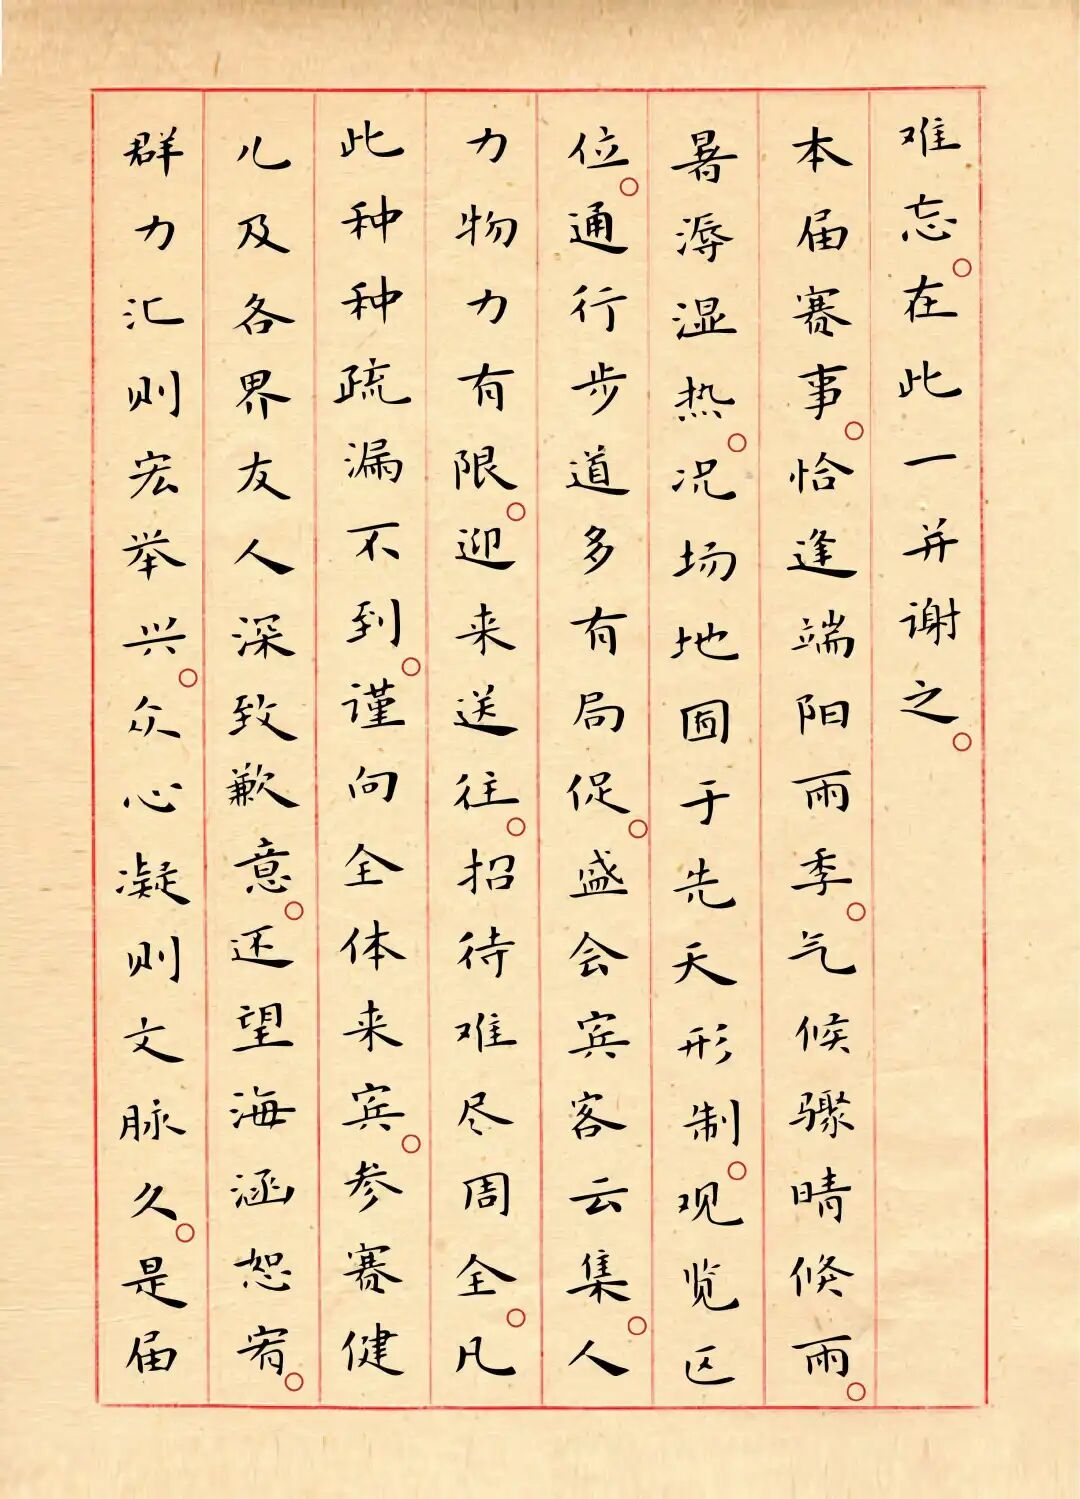 难忘。在此一并谢之。
本届赛事。恰逢端阳雨季。气候骤晴倏雨。
暑溽湿热。况场地囿于先天形制。观览区
位。通行步道多有局促。盛会宾客云集。人
力物力有限。迎来送往。招待难尽周全。凡
此种种疏漏不到。谨向全体来宾。参赛健
儿及各界友人深致歉意。还望海涵恕宥。
群力汇则宏举兴。众心凝则文脉久。是届